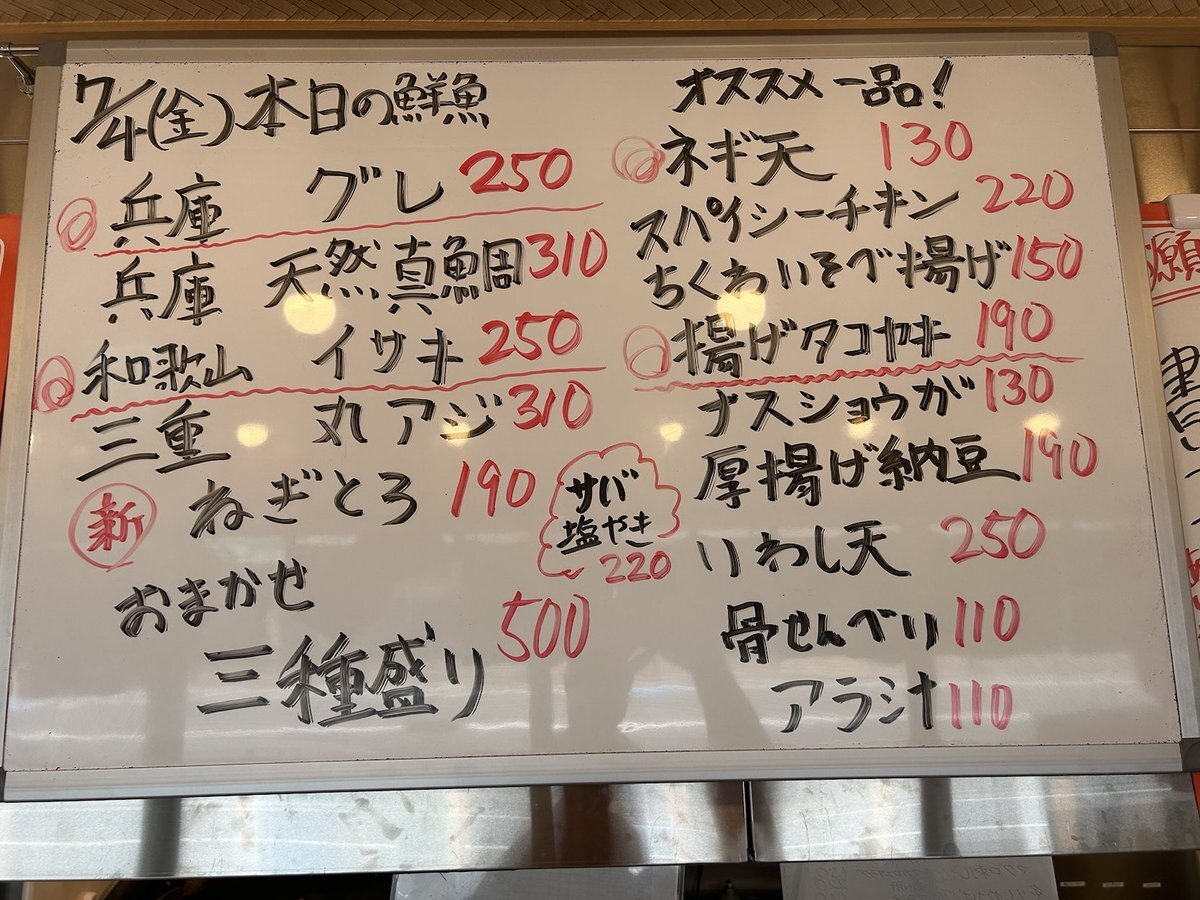 7/4(金)本日の鮮魚
兵庫 グレ 250
兵庫 天然真鯛 310
和歌山 イサキ 250
三重 丸アジ 310
新 ねぎとろ 190
おまかせ
三種盛り 500
サバ
塩やき
220
オススメ一品!
ネギ天 130
スパイシーチキン 220
ちくわいそべ揚げ 150
揚げタコヤキ 190
ナスショウが 130
厚揚げ納豆 190
いわし天 250
骨せんべい 110
アラシオ 110
願